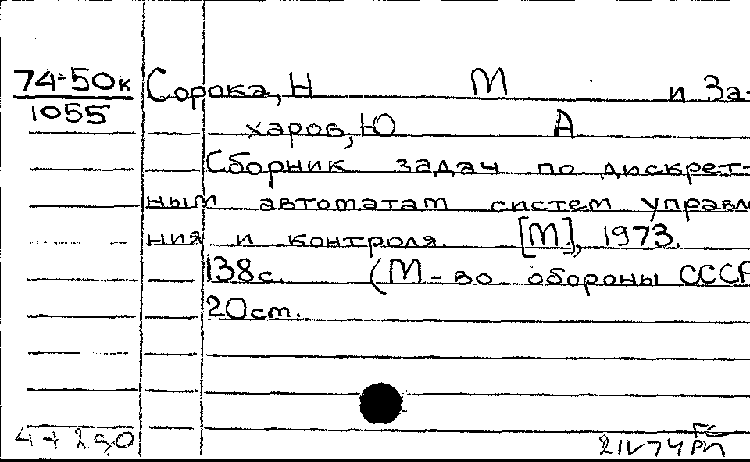 74-50к Сорока, Н М и За-
1055
харов, Ю А
Сборник задач по дискрет-
ным автоматам систем управле
ния и контроля. [М], 1973.
138с. (М-во обороны СССР
20ст.
21V74